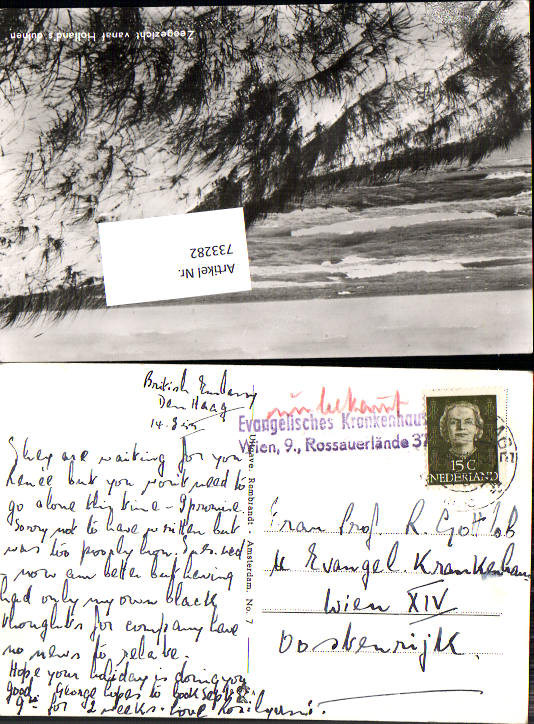 Zeegezicht vanaf Holland's duinen
Artikel Nr.
733282
British Embassy
Den Haag
14. 8
They are waiting for you
Renée but you won't need to
go alone this time - I promise.
Sorry not to have written but
was too poorly how.
- now am better but having
had only my own black
thoughts for company have
no news to relate.
Hope your holiday is doing you
good. George hopes to
9th for 2 weeks. Love
Uitgave. Rembrandt - Amsterdam. No. 7
unbekannt
Evangelisches Krankenhaus
Wien, 9., Rossauerlände 37
15 C
NEDERLAND
Frau Prof R. Gottlob
Evangel. Krankenhaus
Wien XIV
Oostenrijk.